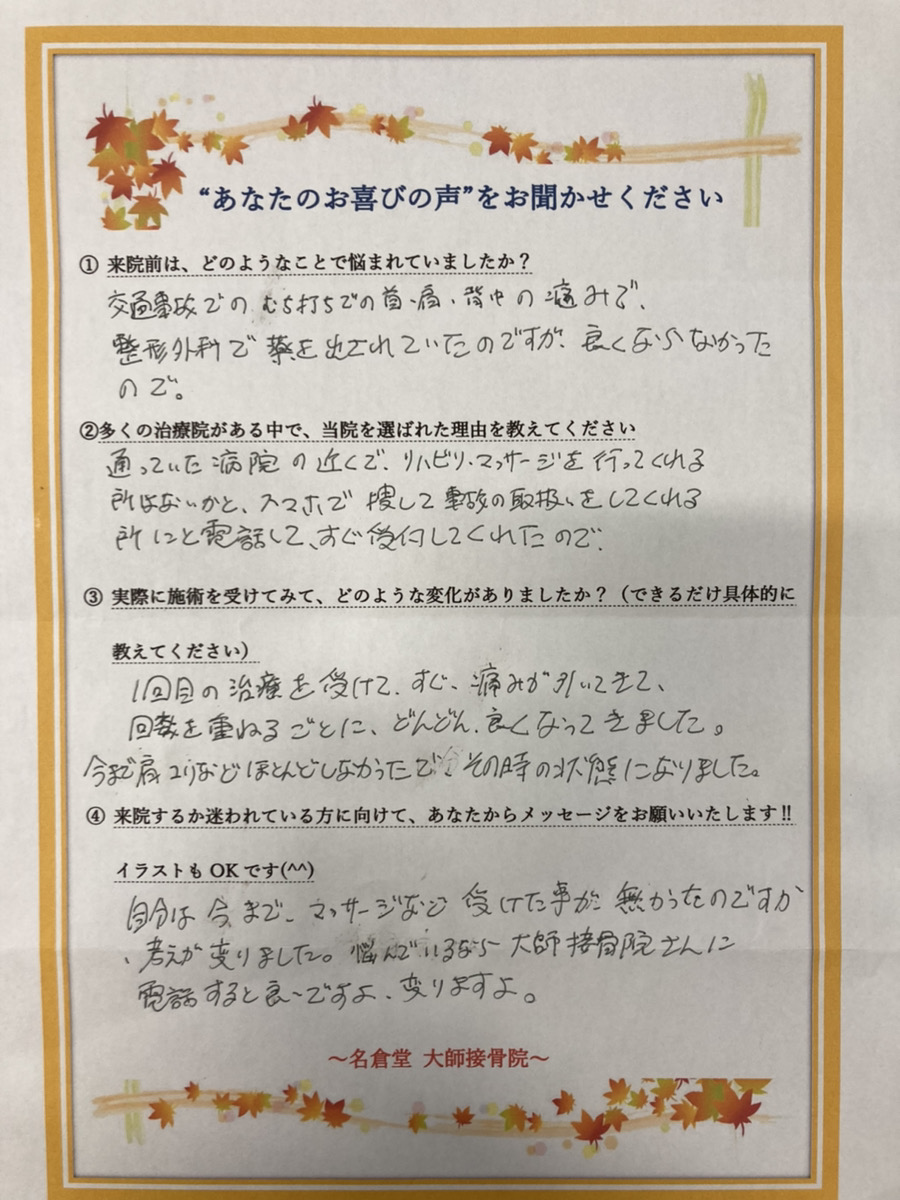 “あなたのお喜びの声”をお聞かせください
① 来院前は、どのようなことで悩まれていましたか？
交通事故での むち打ちでの首・肩・背中の痛みで、
整形外科で薬を出されていたのですが、良くならなかった
ので。
②多くの治療院がある中で、当院を選ばれた理由を教えてください
通っていた病院の近くで、リハビリ・マッサージを行ってくれる
所はないかと、スマホで捜して事故の取扱いをしてくれる
所にと電話して、すぐ受付してくれたので、
③ 実際に施術を受けてみて、どのような変化がありましたか？（できるだけ具体的に
教えてください）
1回目の治療を受けて、すぐ、痛みが引いてきて、
回数を重ねるごとに、どんどん、良くなってきました。
今まで肩コリなどほとんどしなかったで、その時の状態になりました。
④ 来院するか迷われている方に向けて、あなたからメッセージをお願いいたします!!
イラストもOKです(^^)
自分は今まで、マッサージなど受けた事が無かったのですが
、考えが変りました。悩んでいるなら大師接骨院さんに
電話すると良いですよ、変りますよ。
～名倉堂 大師接骨院～